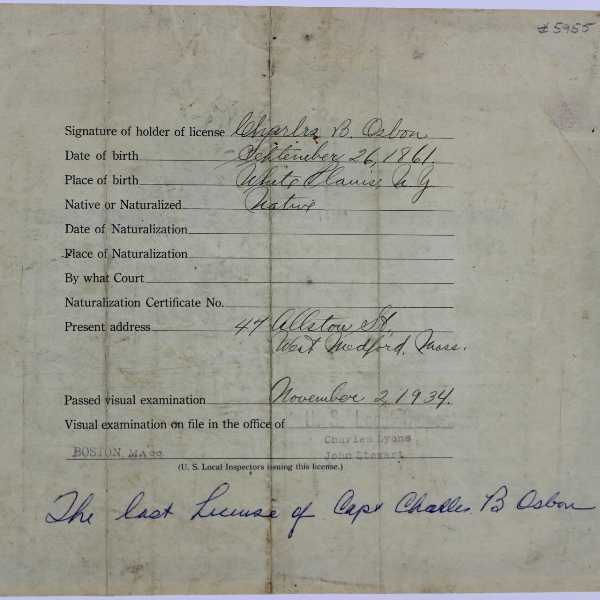 #5955
Signature of holder of license Charles B. Osbon
Date of birth September 26, 1861.
Place of birth White Plains, N.Y.
Native or Naturalized Native
Date of Naturalization
Place of Naturalization
By what Court
Naturalization Certificate No.
Present address 47 Allston St.,
West Medford, Mass.
Passed visual examination November 2, 1934.
Visual examination on file in the office of U. S. Local
Charles Lyons
BOSTON, MASS. John Stewart
(U. S. Local Inspectors issuing this license.)
The last License of Capt Charles B Osbon